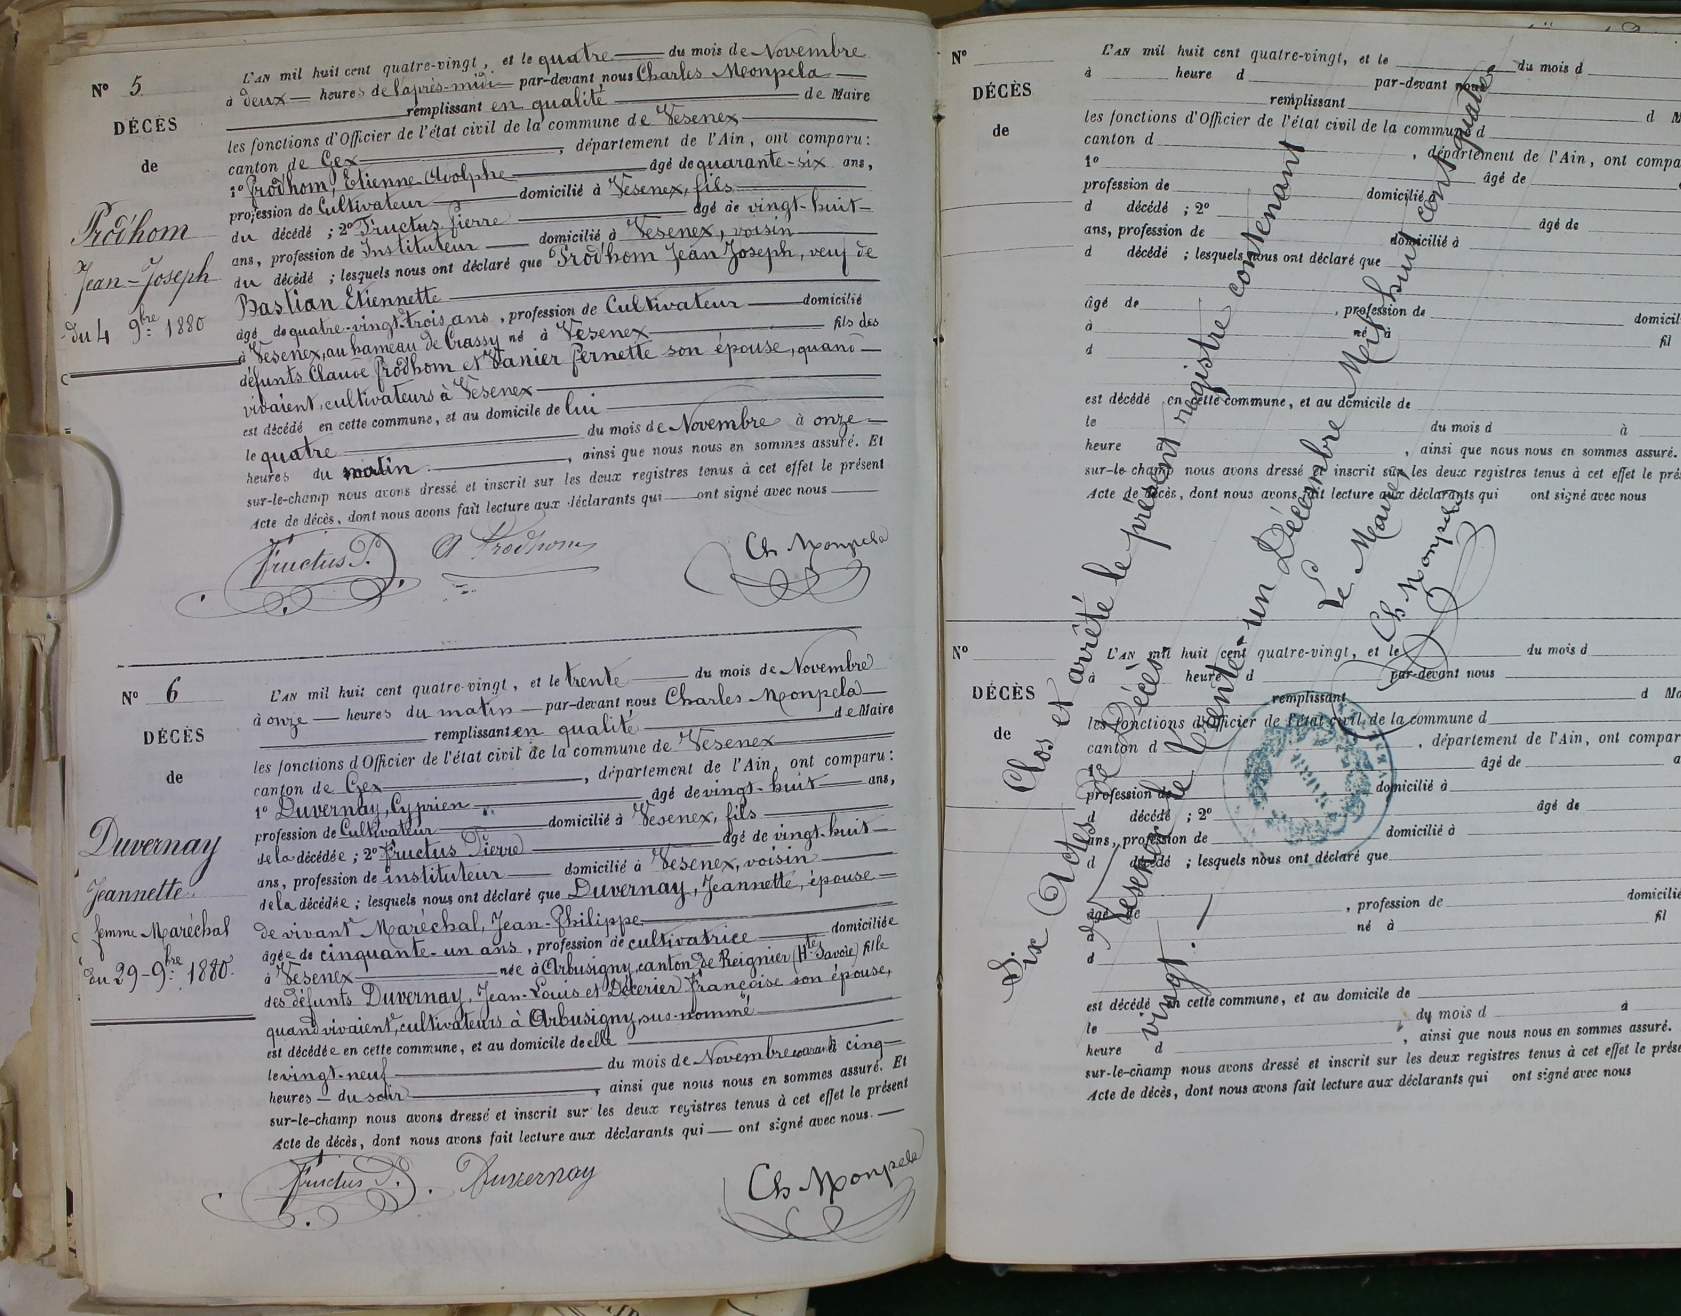 N° 5
DÉCÈS
de
Prodhom
Jean-Joseph
du 4 9bre 1880
L'AN mil huit cent quatre-vingt, et le quatre du mois de Novembre
à deux heures de l'après-midi par-devant nous Charles Monpela
remplissant en qualité de Maire
les fonctions d'Officier de l'état civil de la commune de Vesenex
canton de Gex, département de l'Ain, ont comparu:
1° Prodhom, Etienne Adolphe âgé de quarante-six ans,
profession de Cultivateur domicilié à Vesenex, fils
du décédé ; 2° Fructus Pierre âgé de vingt-huit
ans, profession de Instituteur domicilié à Vesenex, voisin
du décédé ; lesquels nous ont déclaré que Prodhom Jean Joseph, veuf de
Bastian Etiennette
âgé de quatre-vingt-trois ans, profession de Cultivateur domicilié
à Vesenex, au hameau de Crassy né à Vesenex fils des
défunts Claude Prodhom et Vanier Pernette son épouse, quand
vivaient, cultivateurs à Vesenex
est décédé en cette commune, et au domicile de lui
le quatre du mois de Novembre à onze
heures du matin, ainsi que nous nous en sommes assuré. Et
sur-le-champ nous avons dressé et inscrit sur les deux registres tenus à cet effet le présent
Acte de décès, dont nous avons fait lecture aux déclarants qui ont signé avec nous
Fructus P. A Prodhom Ch Monpela
N° 6
DÉCÈS
de
Duvernay
Jeannette
femme Maréchal
du 29-9bre 1880.
L'AN mil huit cent quatre-vingt, et le trente du mois de Novembre
à onze heures du matin par-devant nous Charles Monpela
remplissant en qualité de Maire
les fonctions d'Officier de l'état civil de la commune de Vesenex
canton de Gex, département de l'Ain, ont comparu:
1° Duvernay, Cyprien âgé de vingt-huit ans,
profession de Cultivateur domicilié à Vesenex, fils
de la décédée ; 2° Fructus Pierre âgé de vingt-huit
ans, profession de instituteur domicilié à Vesenex, voisin
de la décédée ; lesquels nous ont déclaré que Duvernay, Jeannette, épouse
de vivant Maréchal, Jean-Philippe
âgée de cinquante-un ans, profession de cultivatrice domiciliée
à Vesenex née à Arbusigny, canton de Reignier (Hte Savoie) fille
des défunts Duvernay, Jean-Louis et Décerier Françoise son épouse,
quand vivaient, cultivateurs à Arbusigny, sus-nommé
est décédée en cette commune, et au domicile de elle
le vingt-neuf du mois de Novembre courant à cinq
heures du soir, ainsi que nous nous en sommes assuré. Et
sur-le-champ nous avons dressé et inscrit sur les deux registres tenus à cet effet le présent
Acte de décès, dont nous avons fait lecture aux déclarants qui ont signé avec nous.
Fructus P. Duvernay Ch Monpela
N°
DÉCÈS
de
L'AN mil huit cent quatre-vingt, et le du mois d
à heure d par-devant nous
remplissant d M
les fonctions d'Officier de l'état civil de la commune d
canton d , département de l'Ain, ont compa
1° âgé de
profession de domicilié à
d décédé ; 2° âgé de
ans, profession de domicilié à
d décédé ; lesquels nous ont déclaré que
âgé de , profession de domicil
à né à fil
d
est décédé en cette commune, et au domicile de
le du mois d à
heure , ainsi que nous nous en sommes assuré.
sur-le-champ nous avons dressé et inscrit sur les deux registres tenus à cet effet le prés
Acte de décès, dont nous avons fait lecture aux déclarants qui ont signé avec nous
Clos et arrêté le présent registre contenant
Six Actes de Décès
Vesenex le trente-un Décembre Mil huit cent quatre
vingt.
Le Maire,
Ch Monpela
N°
DÉCÈS
de
L'AN mil huit cent quatre-vingt, et le du mois d
à heure d par-devant nous
remplissant d Ma
les fonctions d'Officier de l'état civil de la commune d
canton d , département de l'Ain, ont compar
âgé de a
profession de domicilié à
d décédé ; 2° âgé de
ans, profession de domicilié à
d décédé ; lesquels nous ont déclaré que
âgé de , profession de domicilié
à né à fil
d
est décédé en cette commune, et au domicile de
le du mois d à
heure d , ainsi que nous nous en sommes assuré.
sur-le-champ nous avons dressé et inscrit sur les deux registres tenus à cet effet le prése
Acte de décès, dont nous avons fait lecture aux déclarants qui ont signé avec nous